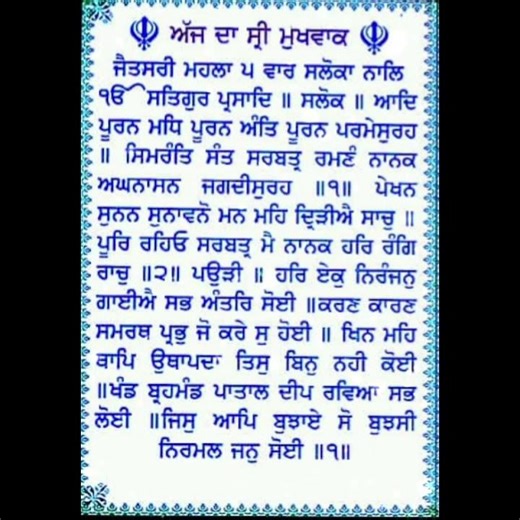 ਅੱਜ ਦਾ ਸ੍ਰੀ ਮੁਖਵਾਕ
ਜੈਤਸਰੀ ਮਹਲਾ ੫ ਵਾਰ ਸਲੋਕਾ ਨਾਲਿ
ੴ ਸਤਿਗੁਰ ਪ੍ਰਸਾਦਿ ॥ ਸਲੋਕ ॥ ਆਦਿ
ਪੂਰਨ ਮਧਿ ਪੂਰਨ ਅੰਤਿ ਪੂਰਨ ਪਰਮੇਸੁਰਹ
॥ ਸਿਮਰੰਤਿ ਸੰਤ ਸਰਬਤ੍ਰ ਰਮਣੰ ਨਾਨਕ
ਅਘਨਾਸਨ ਜਗਦੀਸੁਰਹ ॥੧॥ ਪੇਖਨ
ਸੁਨਨ ਸੁਨਾਵਨੋ ਮਨ ਮਹਿ ਦ੍ਰਿੜੀਐ ਸਾਚੁ ॥
ਪੂਰਿ ਰਹਿਓ ਸਰਬਤ੍ਰ ਮੈ ਨਾਨਕ ਹਰਿ ਰੰਗਿ
ਰਾਚੁ ॥੨॥ ਪਉੜੀ ॥ ਹਰਿ ਏਕੁ ਨਿਰੰਜਨੁ
ਗਾਈਐ ਸਭ ਅੰਤਰਿ ਸੋਈ ॥ਕਰਣ ਕਾਰਣ
ਸਮਰਥ ਪ੍ਰਭੁ ਜੋ ਕਰੇ ਸੁ ਹੋਈ ॥ ਖਿਨ ਮਹਿ
ਥਾਪਿ ਉਥਾਪਦਾ ਤਿਸੁ ਬਿਨੁ ਨਹੀ ਕੋਈ
॥ਖੰਡ ਬ੍ਰਹਮੰਡ ਪਾਤਾਲ ਦੀਪ ਰਵਿਆ ਸਭ
ਲੋਈ ॥ਜਿਸੁ ਆਪਿ ਬੁਝਾਏ ਸੋ ਬੁਝਸੀ
ਨਿਰਮਲ ਜਨੁ ਸੋਈ ॥੧॥